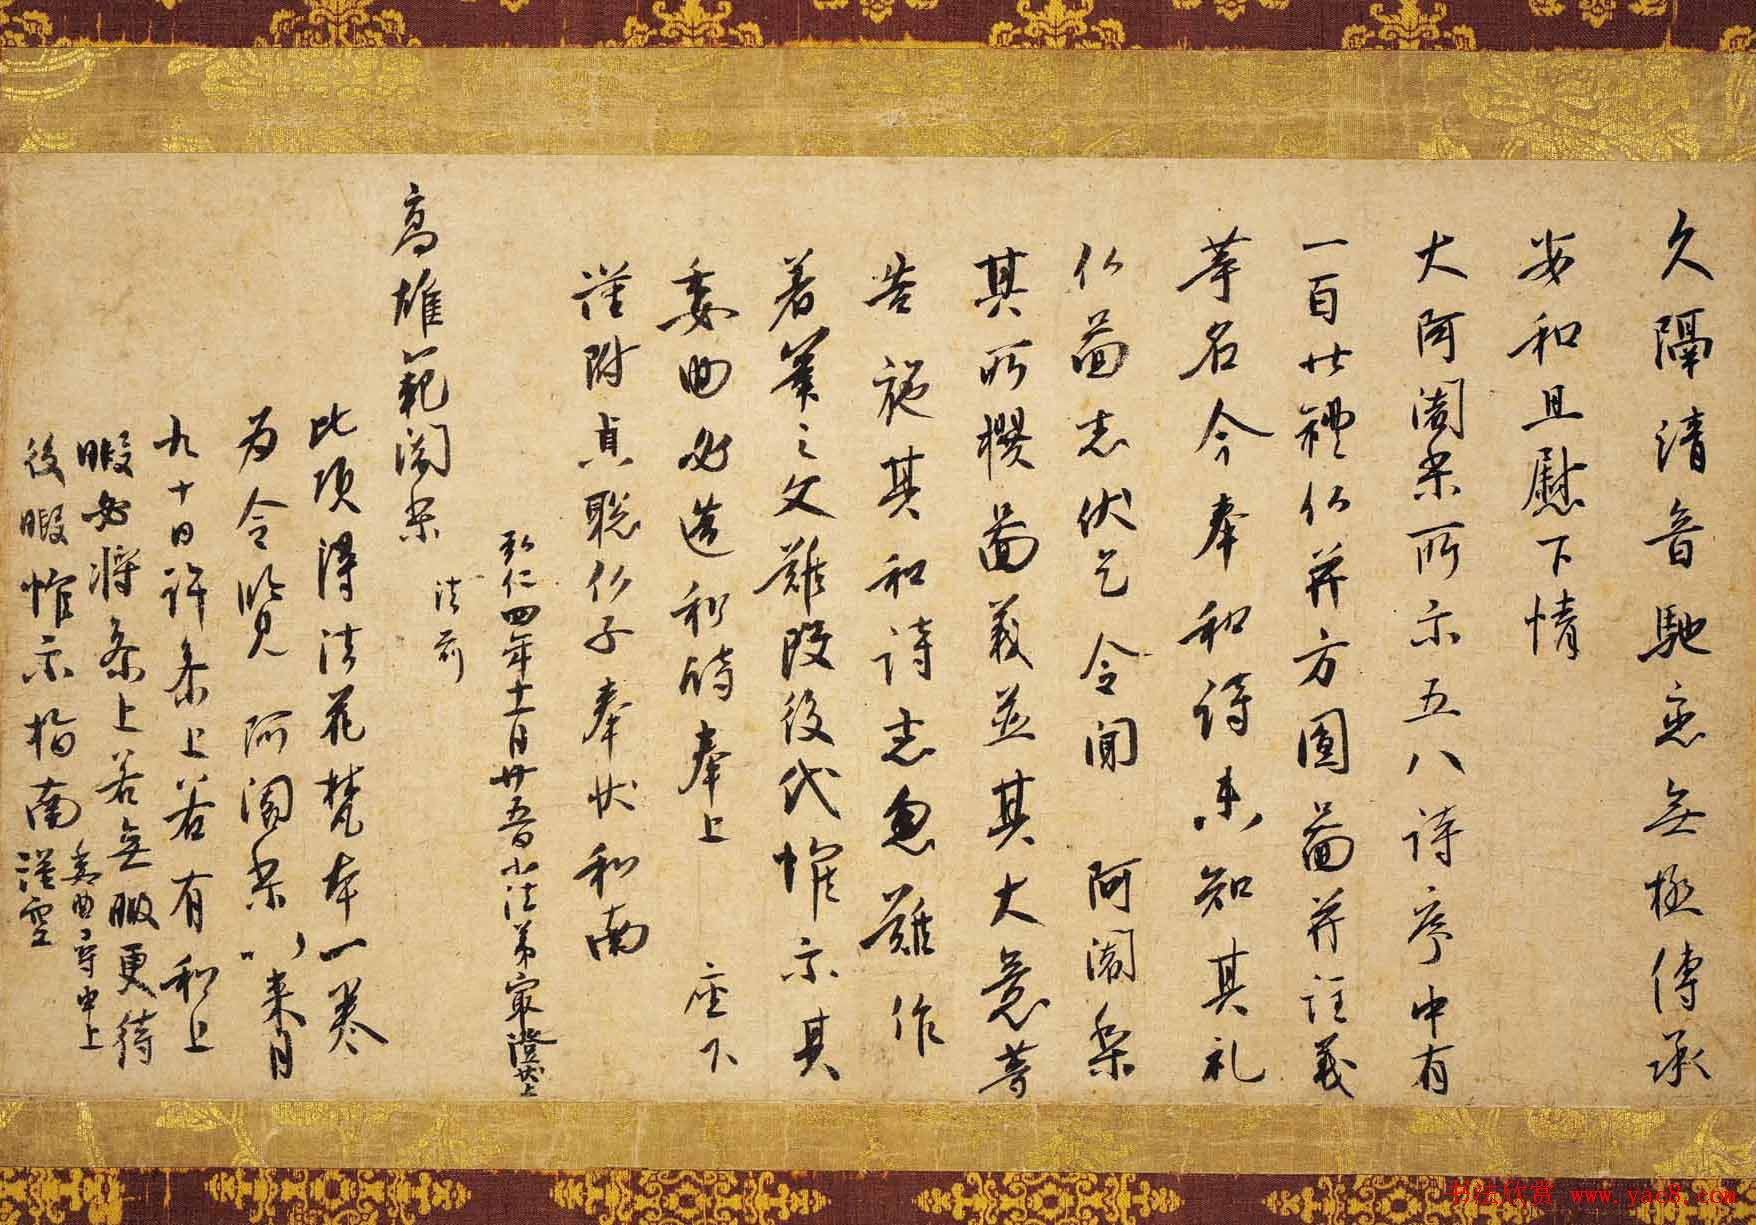 久隔清音馳恋無極傳承
安和且慰下情
大阿闍梨所示五八詩序中有
一百廿禮仏并方圓圖并註義
等名今奉和詩未知其礼
仏圖志伏乞令聞 阿闍梨
其所撰圖義並其大意等
告施其和詩者忽難作
著筆之文難改後代惟示其
委曲必造和詩奉上 座下
謹附貞聡仏子奉状和南
弘仁四年十一月廿五日小法弟最澄状上
高雄範闍梨 法前
此頃得法花梵本一卷
為令覧 阿闍梨以来月
九十日許参上若有和上
暇必将参上若無暇更待
後暇惟示指南 委曲尋申上
謹空
书法欣赏 www.yac8.com